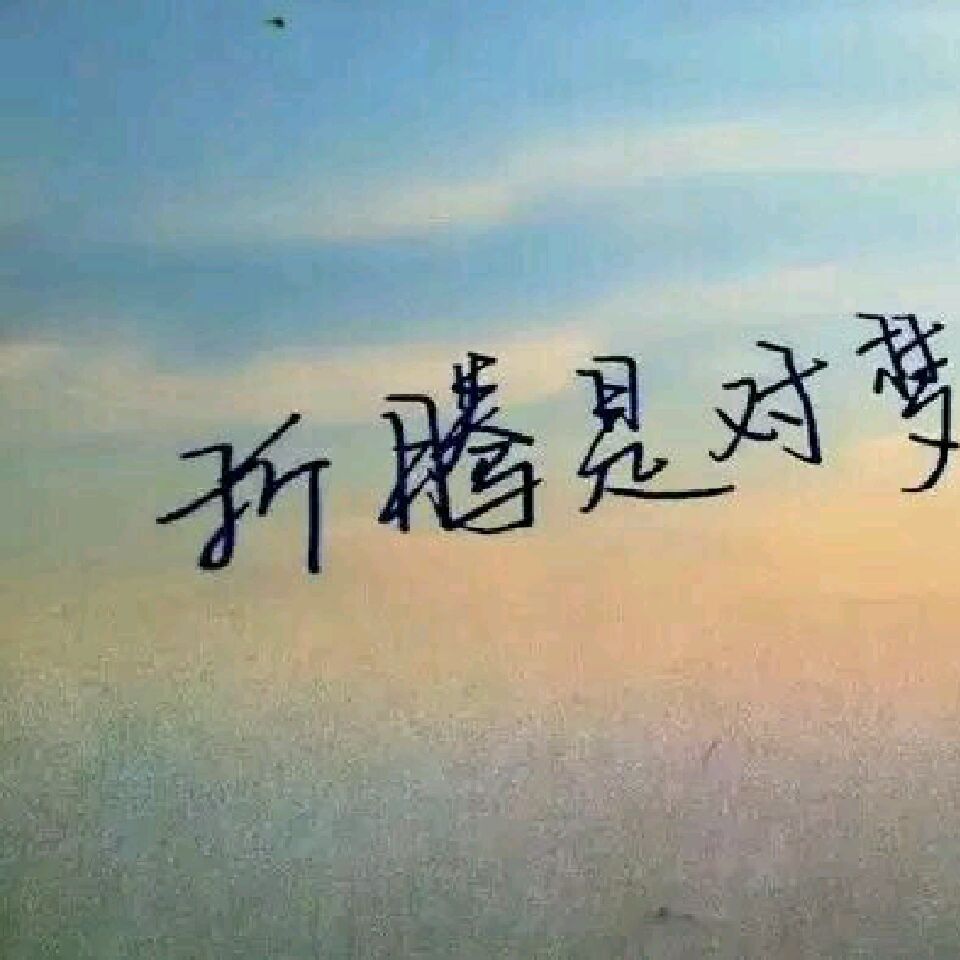 折腾是对梦